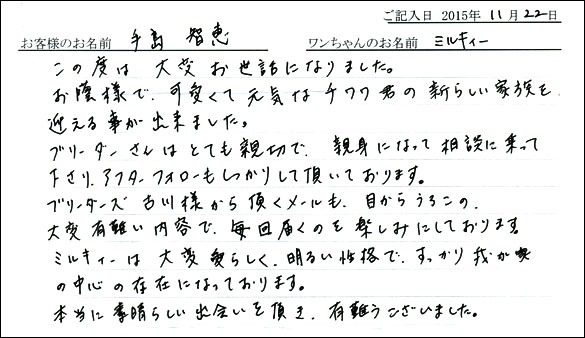 ご記入日 2015年 11月 22日
お客様のお名前 手島 智恵 ワンちゃんのお名前 ミルキィー
この度は 大変 お世話になりました。
お蔭様で、可愛くて 元気な チワワ君の 新らしい家族を
迎える事が出来ました。
ブリーダーさんはとても親切で、親身になって 相談に乗って
下さり、アフターフォローもしっかりして頂いております。
ブリーダーズ 古川様から頂くメールも、目からうろこの、
大変有難い内容で、毎回届くのを楽しみにしております。
ミルキィーは 大変愛らしく、明るい性格で、すっかり我が家
の中心の存在になっております。
本当に素晴らしい出会いを頂き、有難うございました。